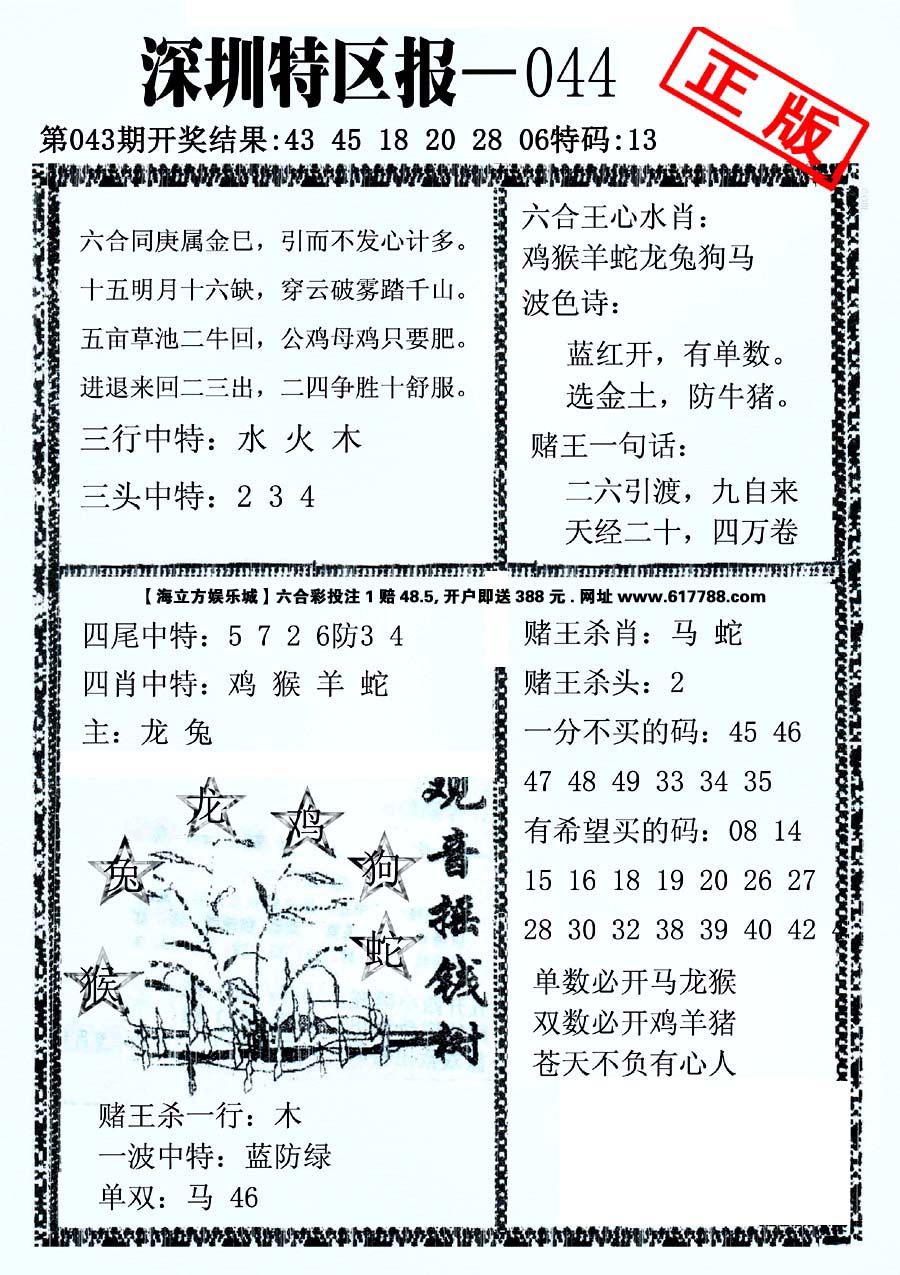 深圳特区报—044
正版
第043期开奖结果:43 45 18 20 28 06特码:13
六合同庚属金巳，引而不发心计多。
十五明月十六缺，穿云破雾踏千山。
五亩草池二牛回，公鸡母鸡只要肥。
进退来回二三出，二四争胜十舒服。
三行中特：水 火 木
三头中特：2 3 4
六合王心水肖：
鸡猴羊蛇龙兔狗马
波色诗：
蓝红开，有单数。
选金土，防牛猪。
赌王一句话：
二六引渡，九自来
天经二十，四万卷
【海立方娱乐城】六合彩投注1赔48.5,开户即送388元.网址www.617788.com
四尾中特：5 7 2 6防3 4
四肖中特：鸡 猴 羊 蛇
主：龙 兔
观音摇钱树
龙
鸡
兔
狗
蛇
猴
赌王杀一行：木
一波中特：蓝防绿
单双：马 46
赌王杀肖：马 蛇
赌王杀头：2
一分不买的码：45 46
47 48 49 33 34 35
有希望买的码：08 14
15 16 18 19 20 26 27
28 30 32 38 39 40 42
单数必开马龙猴
双数必开鸡羊猪
苍天不负有心人